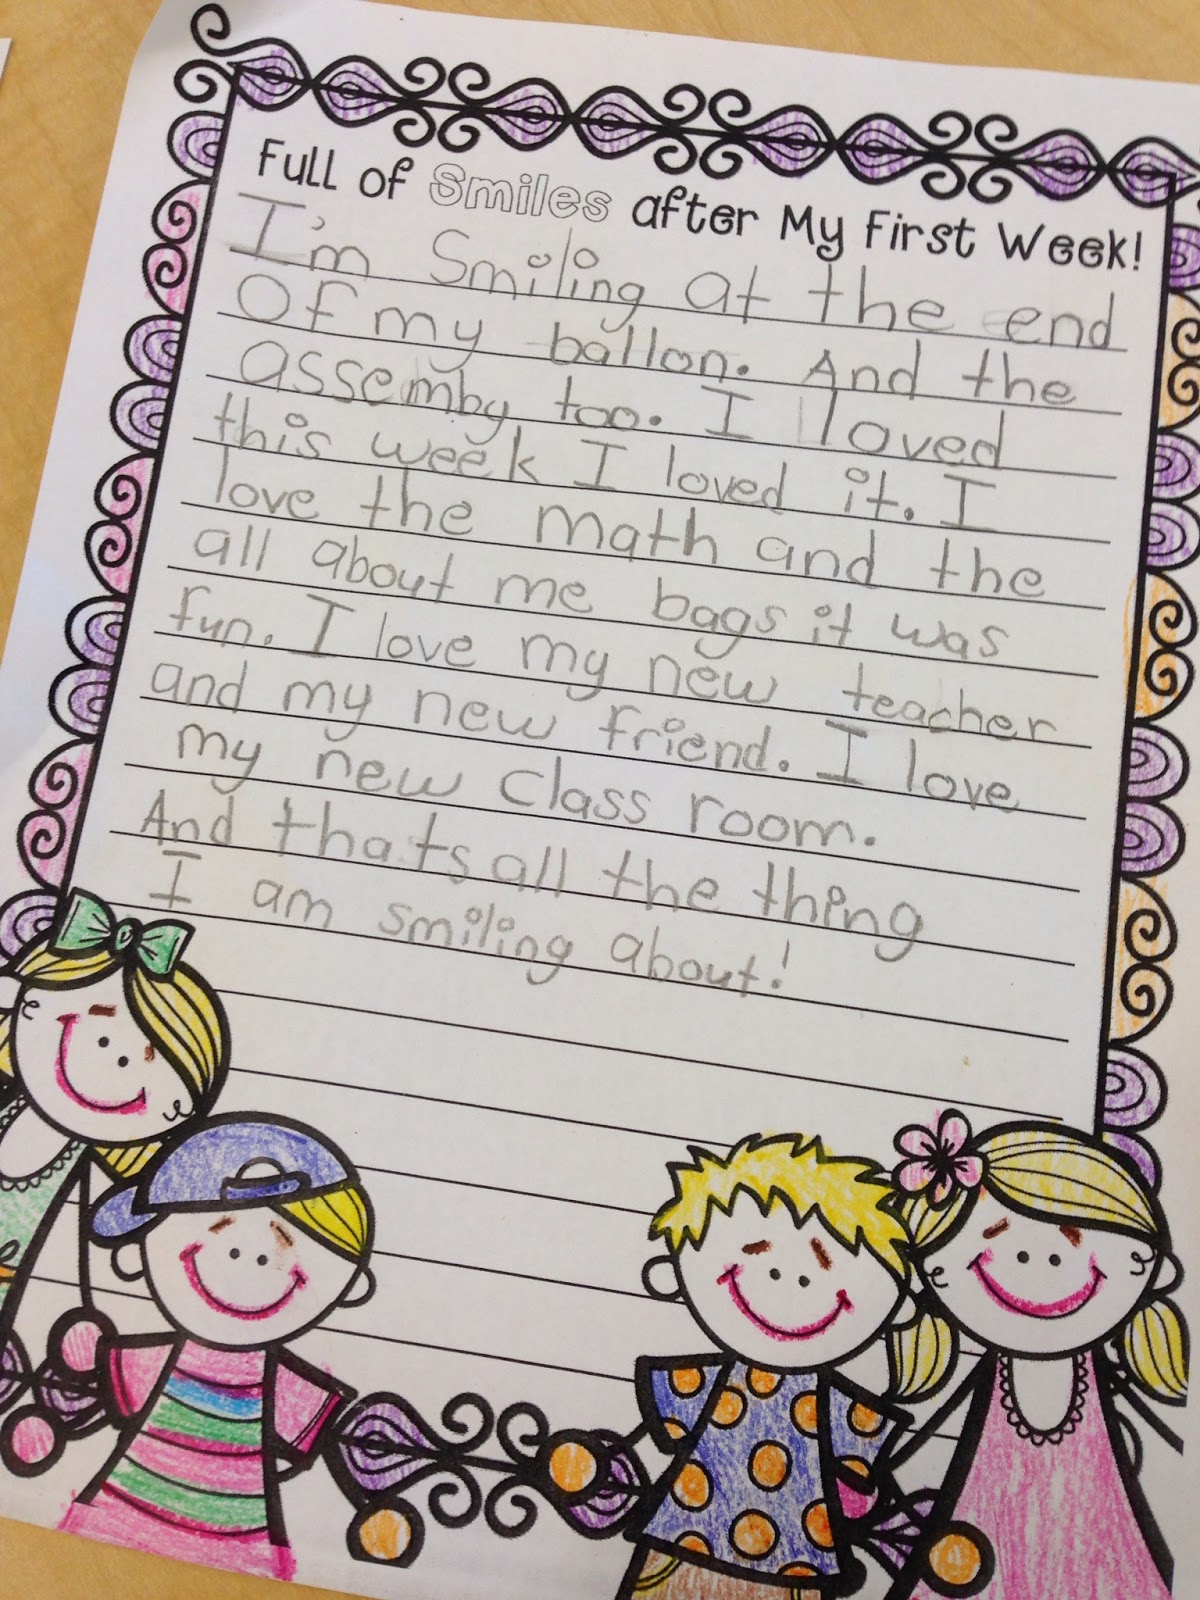 Full of Smiles after My First Week!
I'm Smiling at the end
Of my ballon. And the
assemby too. I loved
this week I loved it. I
love the math and the
all about me bags it was
fun. I love my new teacher
and my new friend. I love
my new Class room.
And thats all the thing
I am smiling about!